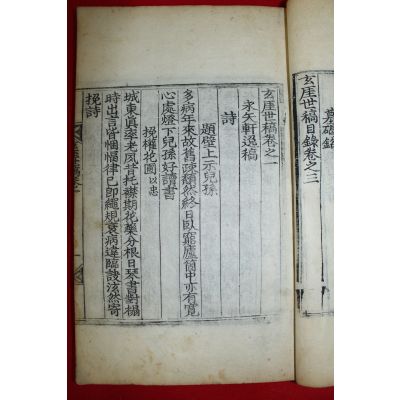 墓碣銘
玄厓世稿目錄卷之三
玄厓世稿卷之一
永矢軒逸稿
詩
題壁上示兒孫
多病年來故舊疎頹然終日臥窮廬箇中亦有寬
心處燈下兒孫好讀書
挽權花園以忠
城東眞率老夙昔托襟期花藥分根日琴書對榻
時出言皆悃愊律己卽繩規衰病違臨訣泫然寄
挽詩